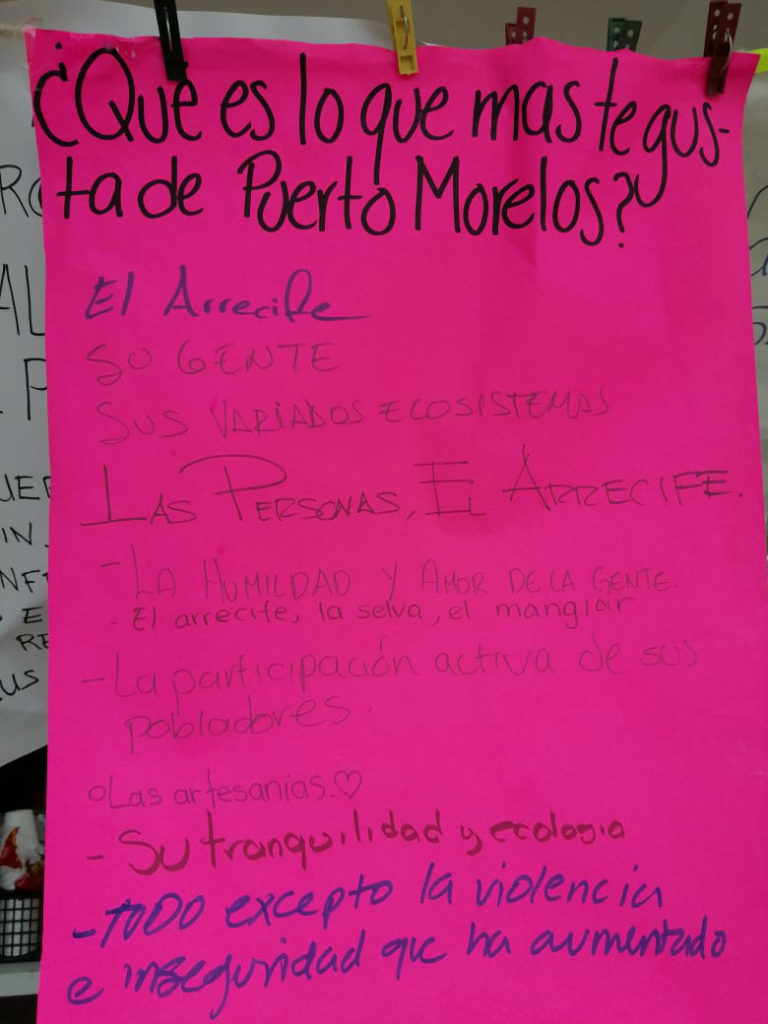 ¿Qué es lo que mas te gus-
ta de Puerto Morelos?
El Arrecife
SU GENTE
SUS VARIADOS ECOSISTEMAS
LAS PERSONAS, EL ARRECIFE.
- LA HUMILDAD Y AMOR DE LA GENTE.
- El arrecife, la selva, el manglar
- La participación activa de sus
pobladores.
○ Las artesanias. ♡
- Su tranquilidad y ecologia
- TODO excepto la violencia
e inseguridad que ha aumentado